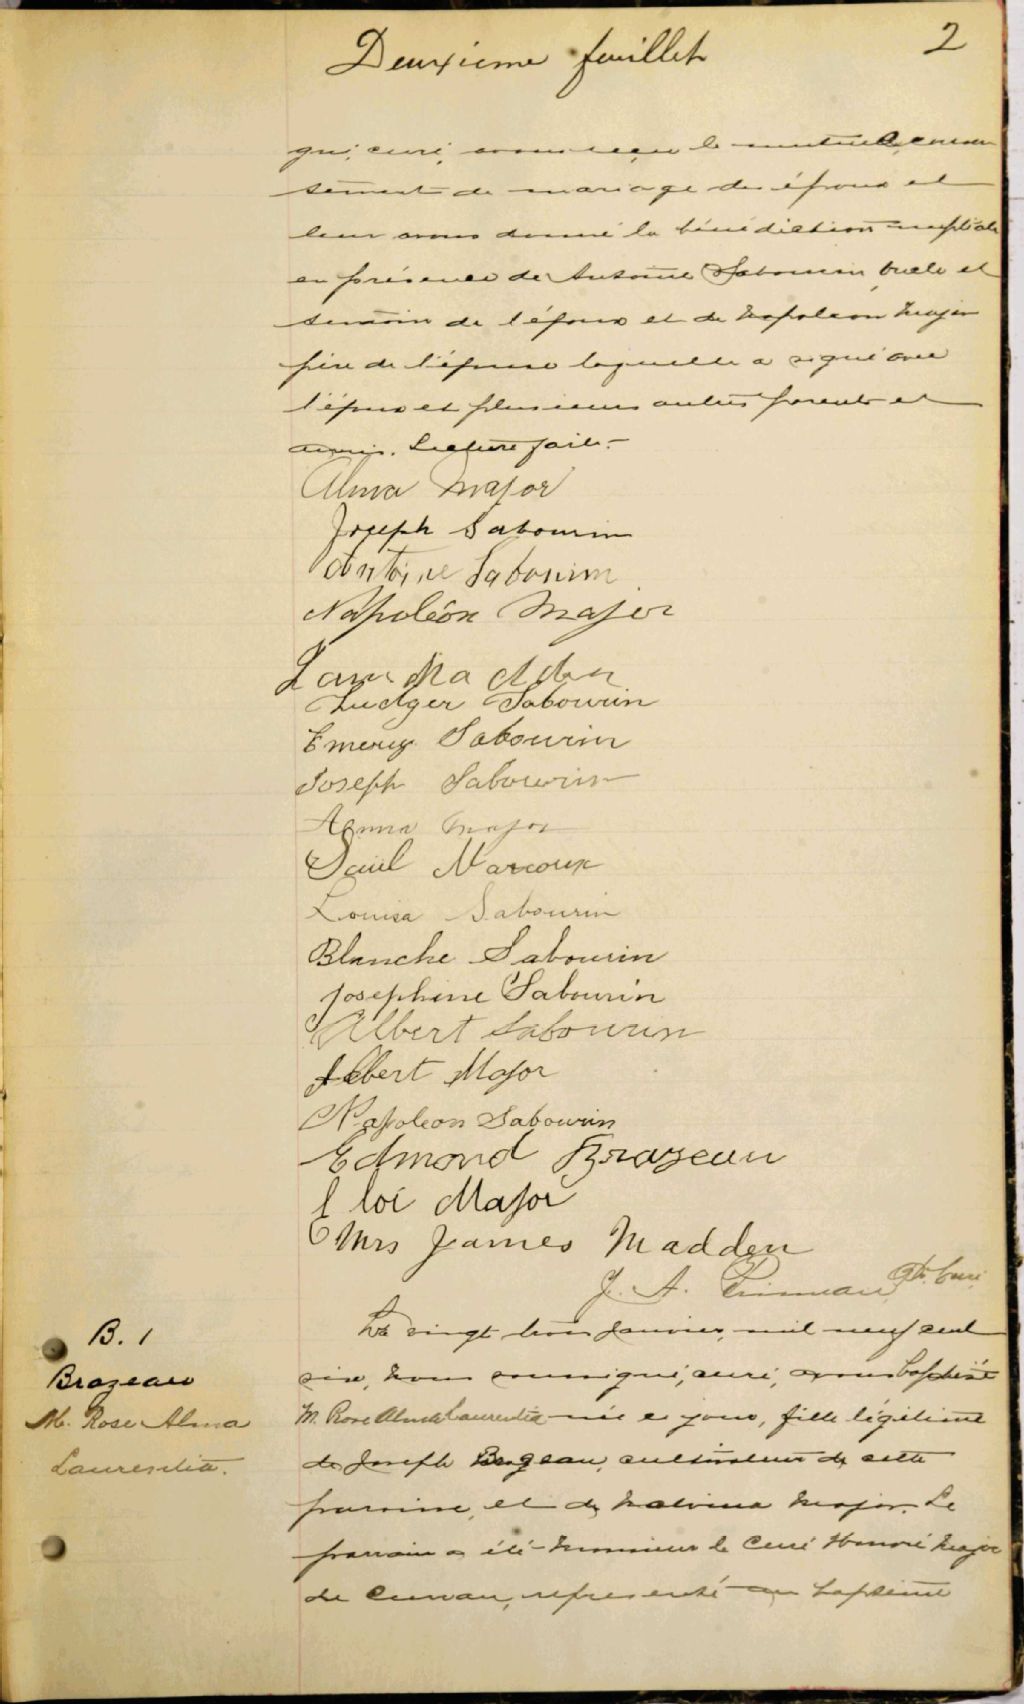 Deuxième feuillet
2
gné, curé, avons reçu le mutuel consen
tement de mariage des époux et
leur avons donné la bénédiction nuptiale
en présence de Antoine Sabourin, oncle et
témoin de l'époux et de Napoleon Major
père de l'épouse laquelle a signé avec
l'époux et plusieurs autres parents et
amis. Lecture faite.-
Alma Major
Joseph Sabourin
Antoine Sabourin
Napoléon Major
Madden
Ludger Sabourin
Emery Sabourin
Joseph Sabourin
Anna Major
Marcoux
Louisa Sabourin
Blanche Sabourin
Josephine Sabourin
Albert Sabourin
Albert Major
Napoleon Sabourin
Edmond Brazeau
Eloi Major
Mrs James Madden
J. A. Primeau, Ptr. Curé
B. 1
Brazeau
M. Rose Alma
Laurentia.
Le vingt trois Janvier, mil neuf cent
six, nous soussigné, curé, avons baptisé
M. Rose Alma Laurentia née ce jour, fille légitime
de Joseph Brazeau, cultivateur de cette
paroisse, et de Malvina Major. Le
parrain a été Monsieur le Curé Honoré Major
de Curran, représenté au baptême